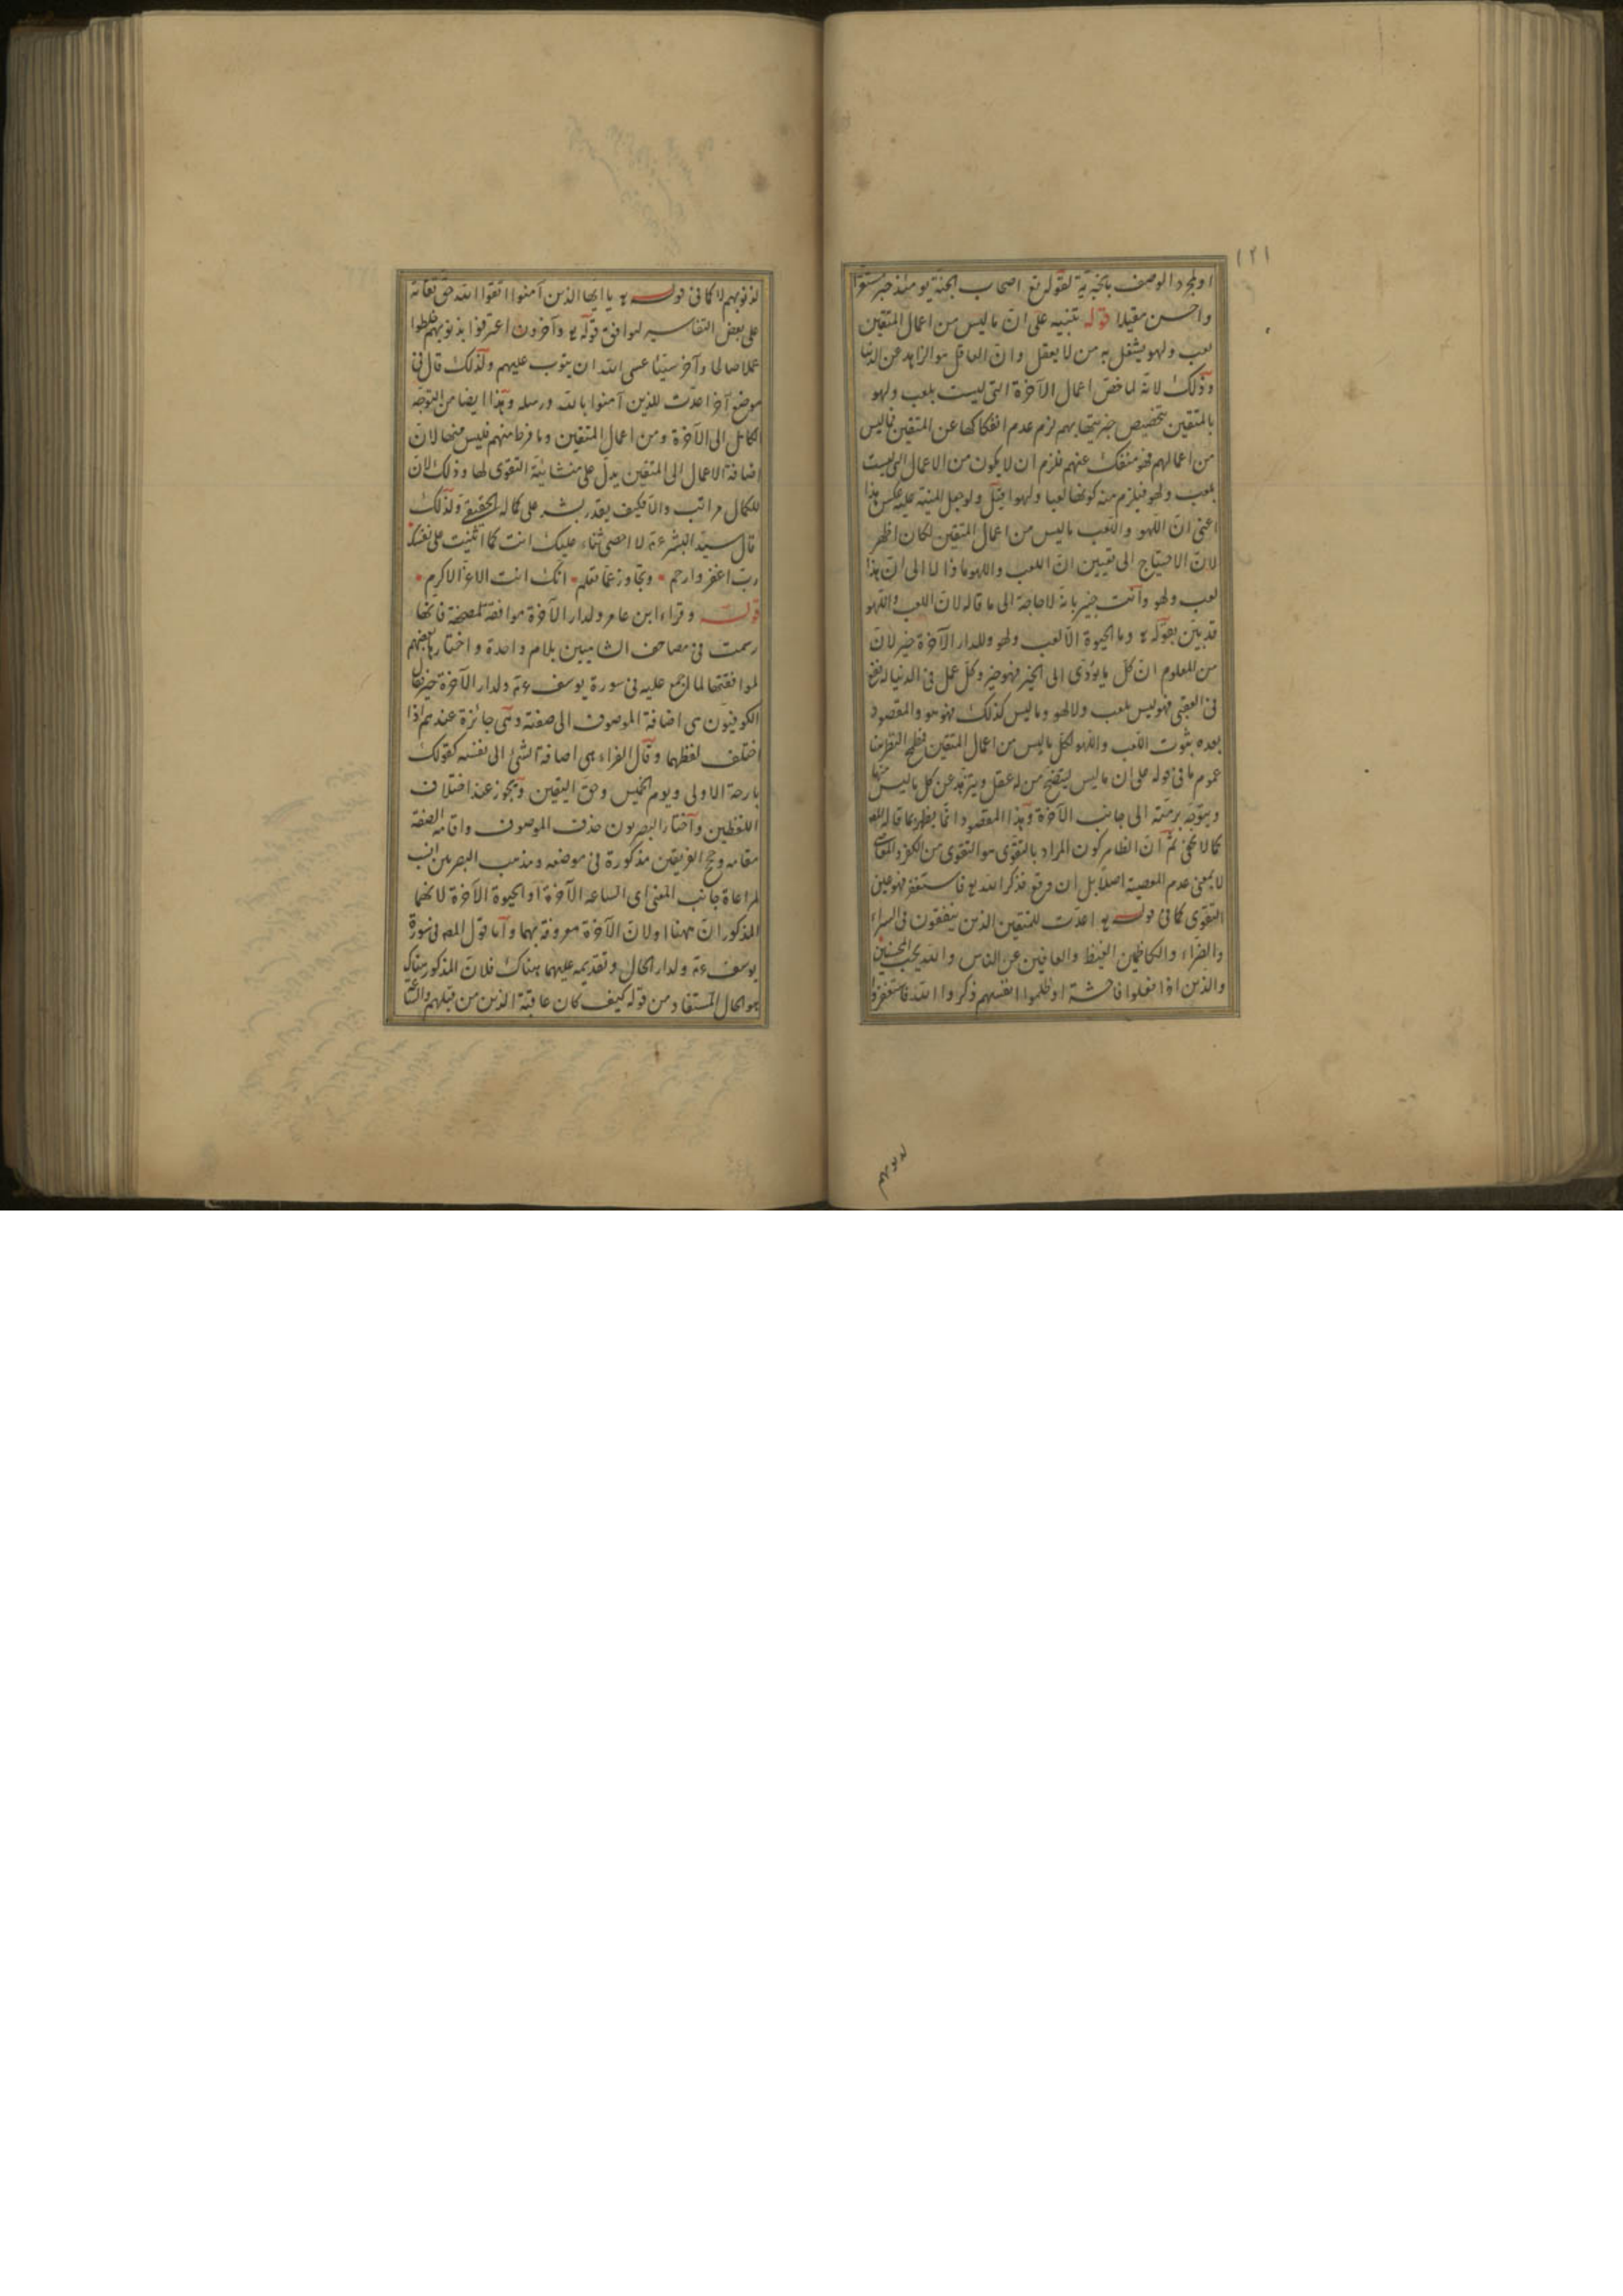 ١٢١
او لمجرد الوصف بالخيرية لقوله تع اصحاب الجنة يومئذ خير مستقرا
واحسن مقيلا قوله تنبيه على ان ما ليس من اعمال المتقين
لعب ولهو يشغل به من لا يعقل وان العاقل هو الزاهد عن الدنيا
وذلك لانه لما خص اعمال الآخرة التى ليست بلعب ولهو
بالمتقين بتخصيص خيريتها بهم لزم عدم انفكاكها عن المتقين فما ليس
من اعمالهم فهو منفك عنهم فلزم ان لا يكون من الاعمال التى ليست
بلعب ولهو فيلزم منه كونها لعبا ولهوا قيل ولو جعل المنبه عليه عكس هذا
اعنى ان اللهو واللعب ما ليس من اعمال المتقين لكان اظهر
لان الاحتياج الى تعيين ان اللعب واللهو ماذا لا الى ان هذا
لعب ولهو وانت خبير بانه لا حاجة الى ما قاله لان اللعب واللهو
قد بين بقوله تع وما الحيوة الا لعب ولهو وللدار الآخرة خير لان
من المعلوم ان كل ما يؤدى الى الخير فهو خير وكل عمل فى الدنيا له نفع
فى العقبى فهو ليس بلعب ولا لهو وما ليس كذلك فهو هو والمقصود
بعده ثبوت اللعب واللهو لكل ما ليس من اعمال المتقين
عموم ما فى قوله على ان ما ليس من له عقل ويتزهد عن كل ما ليس منها
ويتوجه برمته الى جانب الآخرة وهذا المقصود انما يظهر بما قاله المص
كما لا يخفى ثم ان الظاهر كون المراد بالتقوى هو التقوى من الكفر والمعاصى
لا بمعنى عدم المعصية اصلا بل ان وقع فذكر الله تع فاستغفر فهو عين
التقوى كما فى قوله تع اعدت للمتقين الذين ينفقون فى السراء
والضراء والكاظمين الغيظ والعافين عن الناس والله يحب المحسنين
والذين اذا فعلوا فاحشة او ظلموا انفسهم ذكروا الله فاستغفروا
لذنوبهم
لذنوبهم لا كما فى قوله تع يا ايها الذين آمنوا اتقوا الله حق تقاته
على بعض التفاسير لموافق قوله تع وآخرون اعترفوا بذنوبهم خلطوا
عملا صالحا وآخر سيئا عسى الله ان يتوب عليهم ولذلك قال فى
موضع آخر اعدت للذين آمنوا بالله ورسله وهذا ايضا من التوجه
الكامل الى الآخرة ومن اعمال المتقين وما فرط منهم فليس منها لان
اضافة الاعمال الى المتقين يدل على منشائية التقوى لها وذلك لان
للكمال مراتب والا فكيف يقدر بشر على كماله الحقيقى ولذلك
قال سيد البشر عم لا احصى ثناء عليك انت كما اثنيت على نفسك
رب اغفر وارحم وتجاوز عما تعلم انك انت الاعز الاكرم
قوله وقراء ابن عامر ولدار الآخرة موافقة لمصحفه فانها
رسمت فى مصاحف الشاميين بلام واحدة واختارها بعضهم
لموافقتها لما اجمع عليه فى سورة يوسف عم ولدار الآخرة خير فقال
الكوفيون هى اضافة الموصوف الى صفته وهى جائزة عندهم اذا
اختلف لفظهما وقال الفراء هى اضافة الشئ الى نفسه كقولك
بارحة الاولى ويوم الخميس وحق اليقين ويجوز عند اختلاف
اللفظين واختار البصريون حذف الموصوف واقامة الصفة
مقامه وحجج الفريقين مذكورة فى موضعه ومذهب البصريين انسب
لمراعاة جانب المعنى اى الساعة الآخرة او الحيوة الآخرة لانهما
المذكوران ههنا اولان الآخرة معروفة بهما واما قول المص فى سورة
يوسف عم ولدار الحال وتقديمه عليهما هناك فلان المذكور هناك
هو الحال المستفاد من قوله كيف كان عاقبة الذين من قبلهم